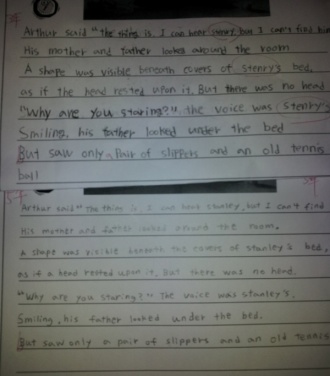 Arthur said "the thing is. I can hear stenry but I can't find him
His mother and father lookes around the room
A shape was visible beneath covers of stenry's bed,
as if the head rested upon it. But there was no head
"Why are you staring?". the voice was stenry's
Smiling, his father looked under the bed
But saw only a Pair of slippers and an old tennis
ball
Arthur said "The thing is, I can hear stanley, but I can't find
His mother and father looked around the room.
A shape was visible beneath the covers of stanley's bed,
as if a head rested upon it. But there was no head.
"Why are you staring?" The voice was stanley's.
Smiling, his father looked under the bed.
But saw only a pair of slippers and an old tennis